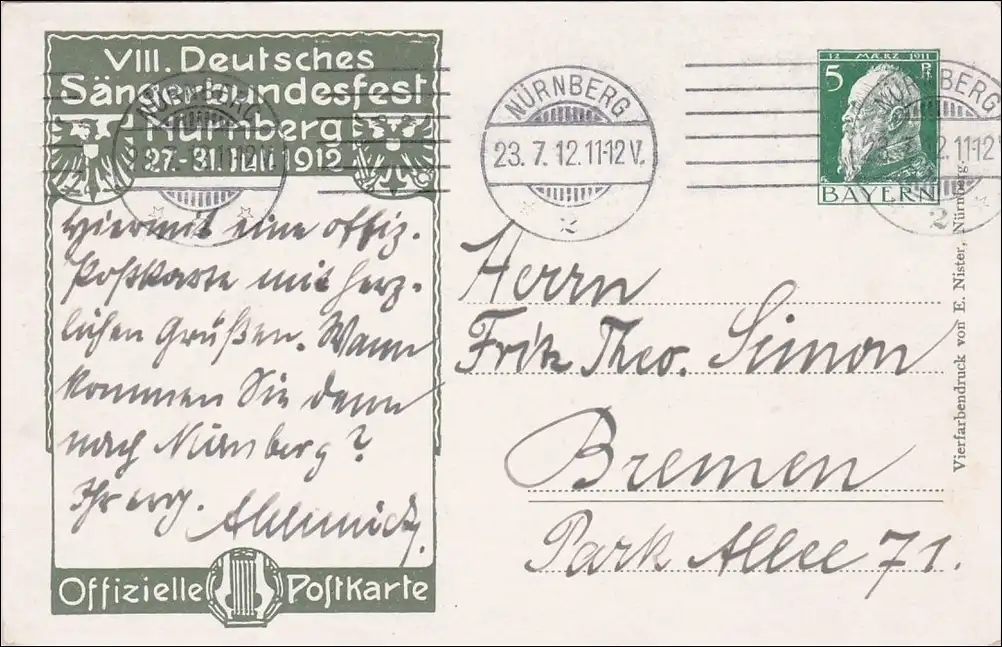 VIII. Deutsches
Sängerbundesfest
Nürnberg
27.-31. Juli 1912
NÜRNBERG
23. 7. 12. 11-12 V.
2
NÜRNBERG
23. 7. 12. 11-12 V.
2
12 MÄRZ 1911
5 Pf.
BAYERN
NÜRNBERG
23. 7. 12. 11-12 V.
2
Hiermit eine offiz.
Postkarte mit herz-
lichen Grüßen. Wann
kommen Sie denn
nach Nürnberg?
Ihr erg.
Offizielle Postkarte
Herrn
Fritz Theo. Simon
Bremen
Park Allee 71.
Vierfarbendruck von E. Nister, Nürnberg.